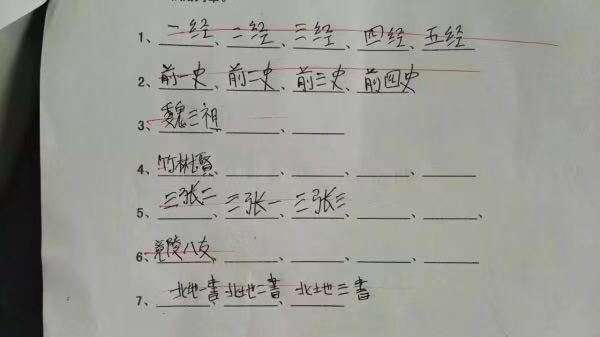 1、一经、二经、三经、四经、五经
2、前一史、前二史、前三史、前四史
3、魏三祖、
4、竹林贤、
5、三张二、三张一、三张三、
6、竟陵八友、
7、北地一書、北地二書、北地三書